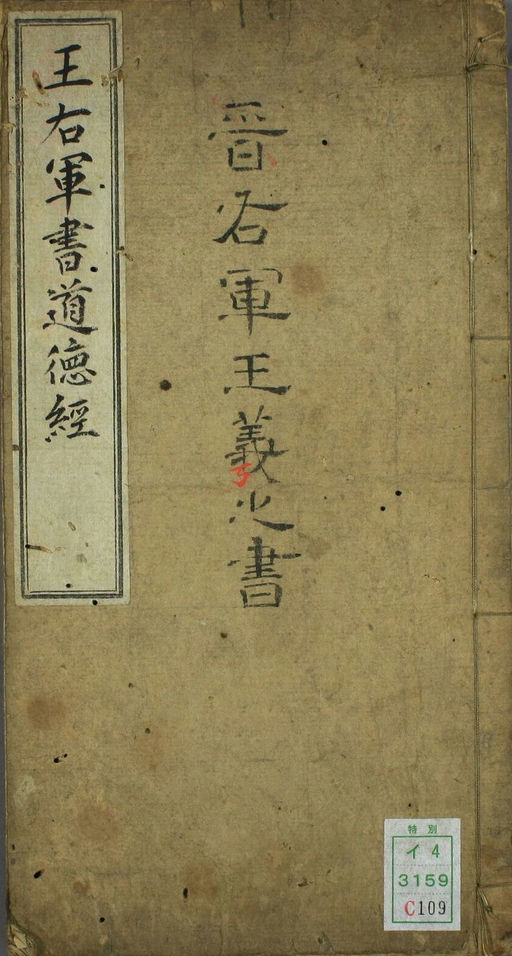 晋右軍王義之書
王右軍書道德經
特別
イ4
3159
C109